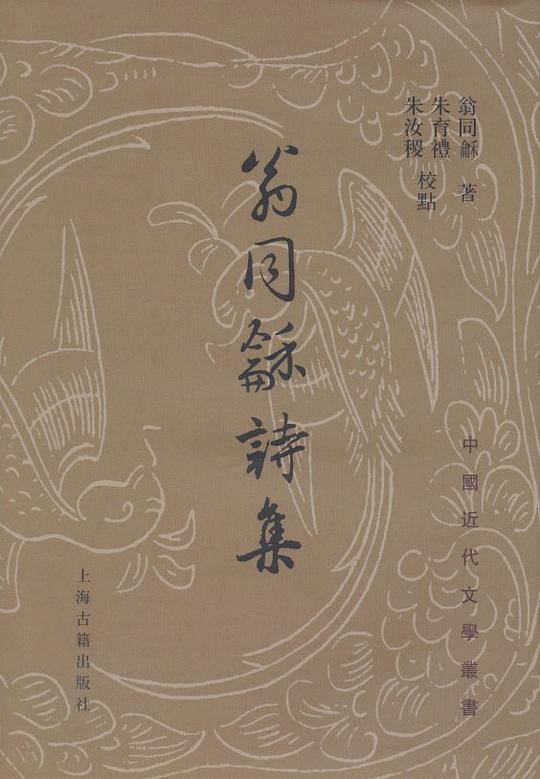 翁同龢 著
朱育禮
朱汝稷 校點
翁同龢詩集
中國近代文學叢書
上海古籍出版社